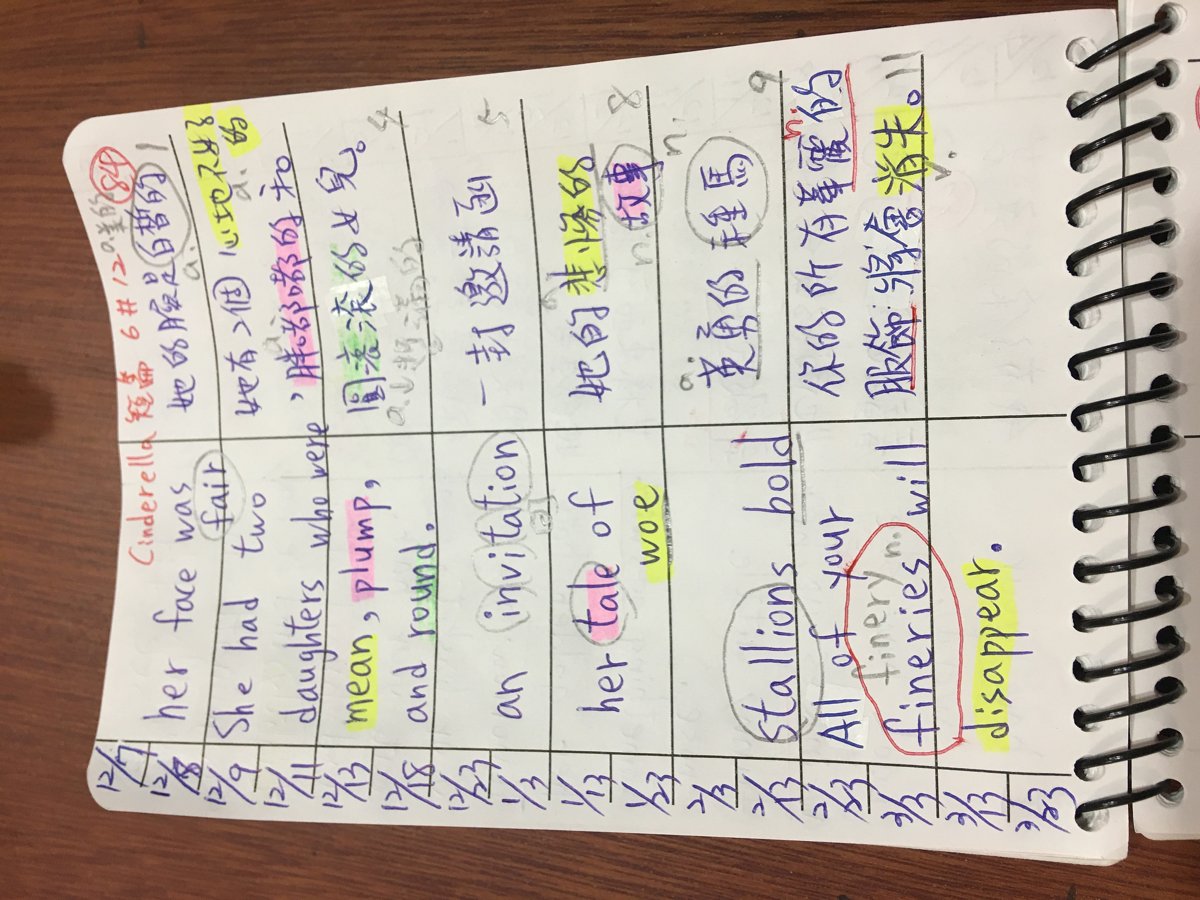 Cinderella 短篇 6 #12
12/7
12/8
12/9
12/11
12/13
12/18
12/23
1/3
1/13
1/23
2/3
2/13
2/23
3/3
3/13
3/23
her face was
fair
她的臉是白皙的
a.
1
She had two
daughters who were
mean, plump,
and round.
她有2個心地不好的
a.
,胖嘟嘟的和
圓滾滾的女兒。
4
an invitation
一封邀請函
5
her tale of
woe
她的悲慘的
故事
n.
8
Stallions bold
英勇的種馬
a.
n.
9
All of your
finery n.
fineries will
disappear.
你的所有華麗的
n.
服飾將會消失。
v.
11